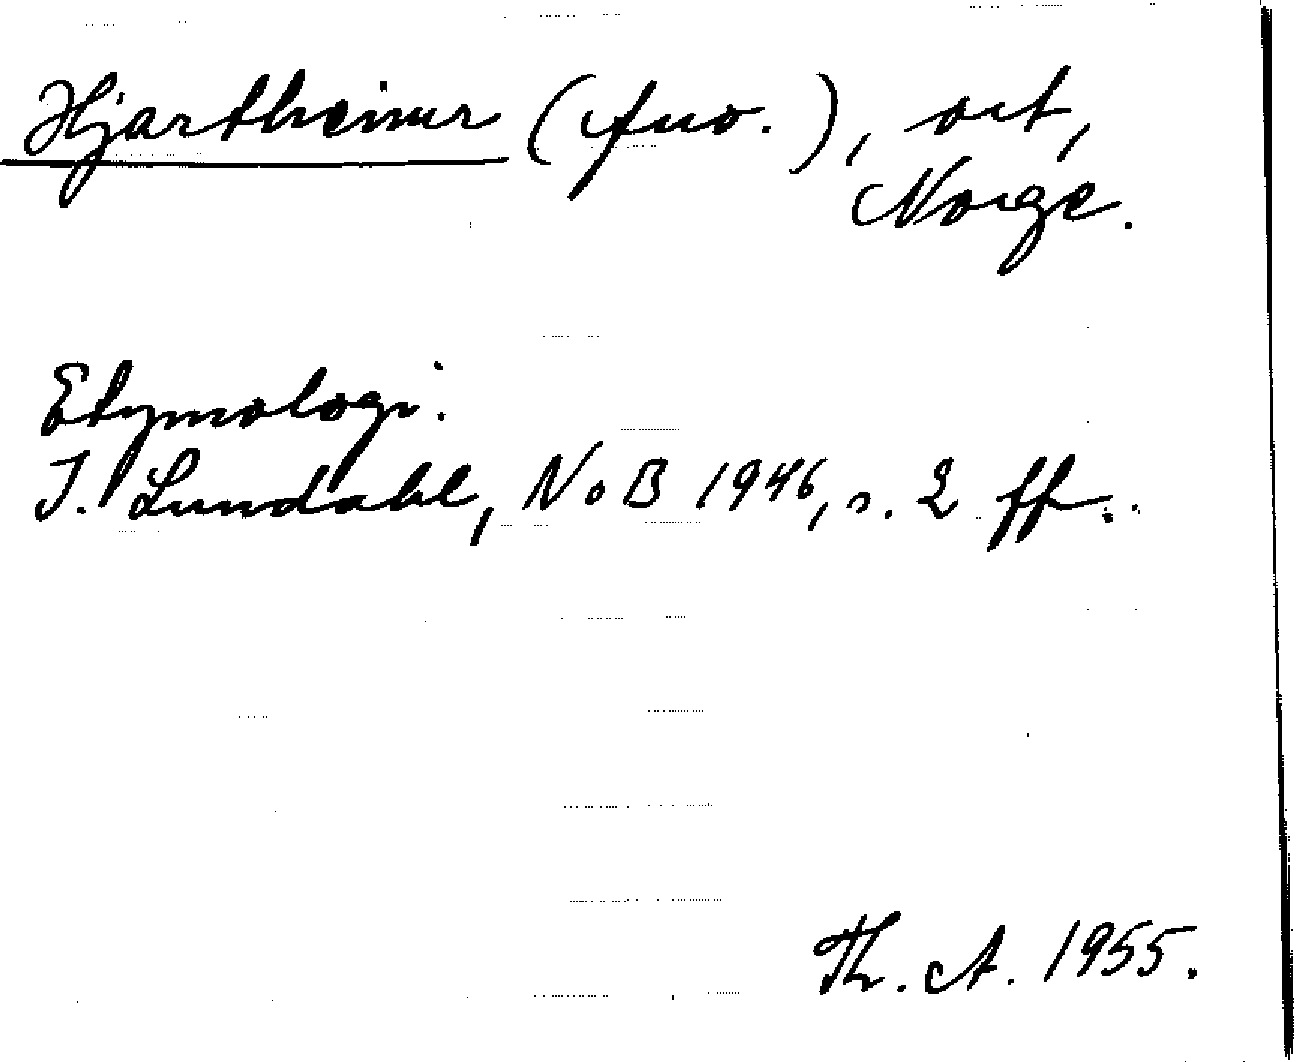 Hjartheimr (fno.), ort,
Norge.
Etymologi:
I. Lundahl, NoB 1946, s. 2 ff..
Th. A. 1955.